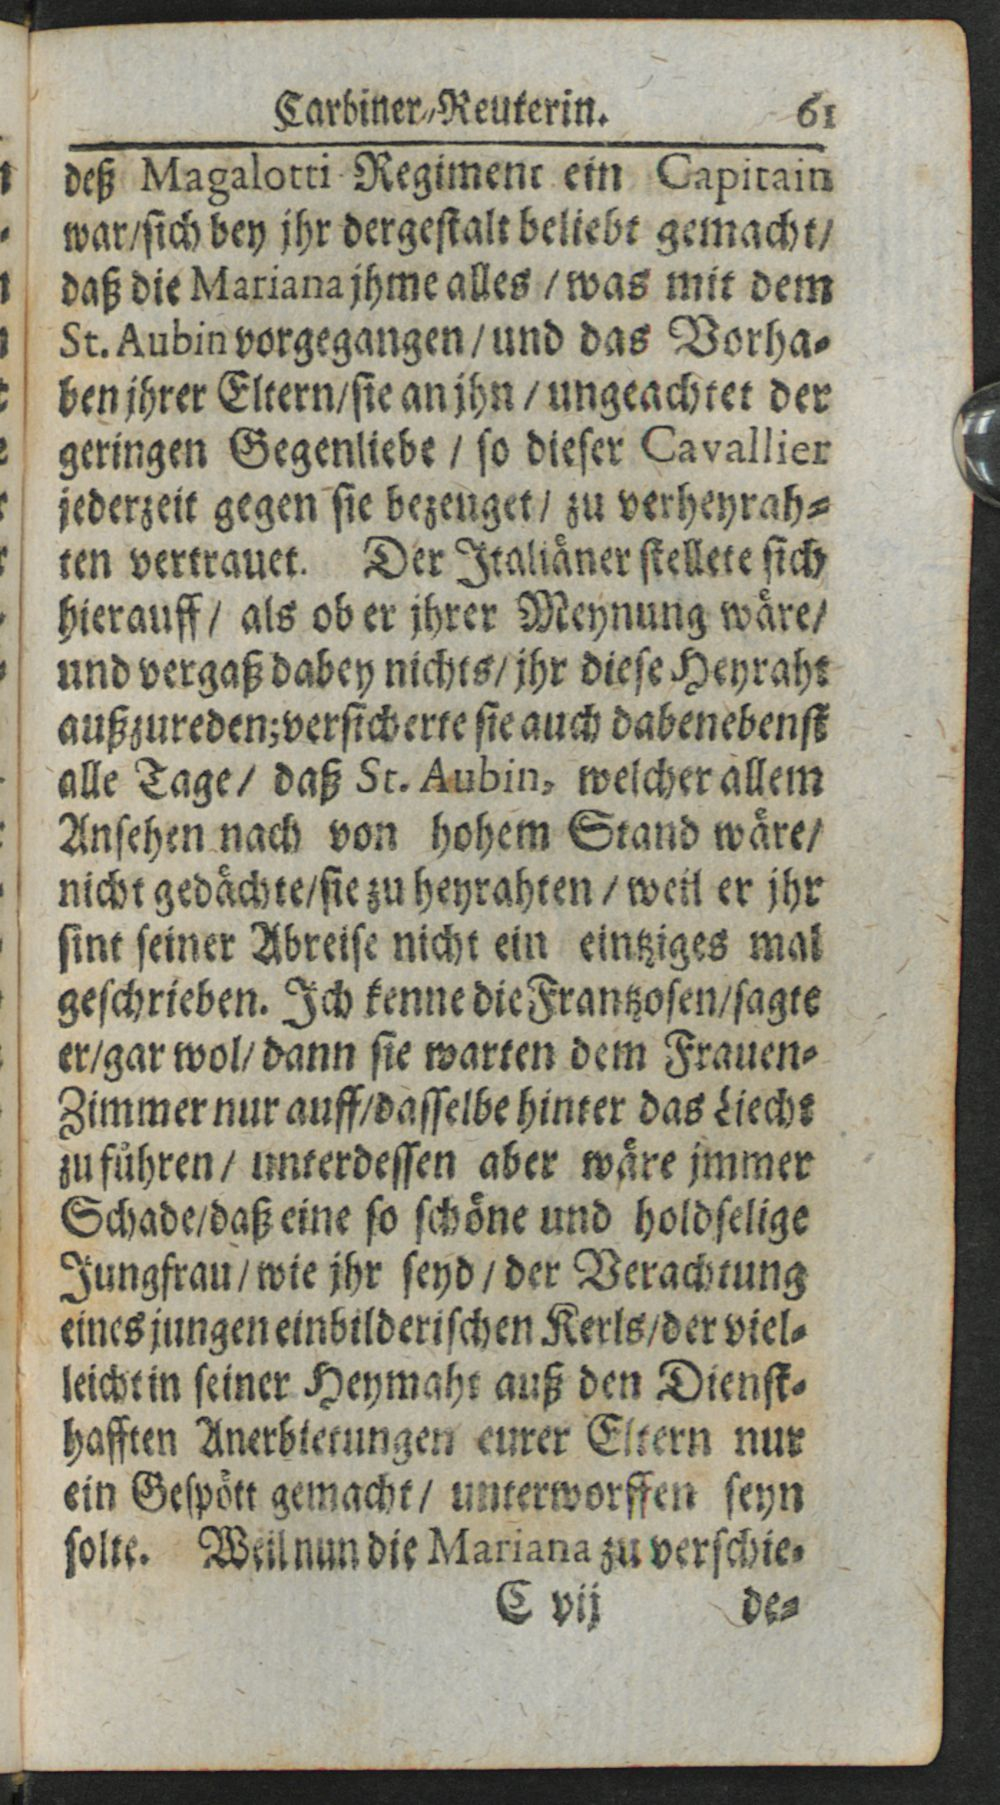 Carbiner-Reuterin. 61
deß Magalotti Regiment ein Capitain
war/sich bey jhr dergestalt beliebt gemacht/
daß die Mariana jhme alles / was mit dem
St. Aubin vorgegangen / und das Vorha-
ben jhrer Eltern/sie an jhn / ungeachtet der
geringen Gegenliebe / so dieser Cavallier
jederzeit gegen sie bezeuget / zu verheyrah-
ten vertrauet. Der Italiäner stellete sich
hierauff / als ob er jhrer Meynung wäre/
und vergaß dabey nichts/ jhr diese Heyraht
außzureden; versicherte sie auch dabenebenst
alle Tage / daß St. Aubin, welcher allem
Ansehen nach von hohem Stand wäre/
nicht gedächte/sie zu heyrahten / weil er jhr
sint seiner Abreise nicht ein eintziges mal
geschrieben. Ich kenne die Frantzosen/sagte
er/gar wol/ dann sie warten dem Frauen-
Zimmer nur auff/dasselbe hinter das Liecht
zu führen / unterdessen aber wäre jmmer
Schade/daß eine so schöne und holdselige
Jungfrau / wie jhr seyd / der Verachtung
eines jungen einbilderischen Kerls/der viel-
leicht in seiner Heymaht auß den Dienst-
hafften Anerbietungen eurer Eltern nur
ein Gespött gemacht / unterworffen seyn
solte. Weil nun die Mariana zu verschie-
C vij de-